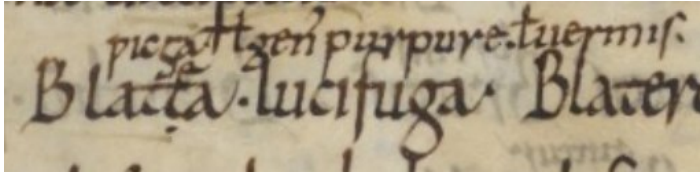 picga ł gen̄ purpure. ł uermis.
Blatta. lucifuga. Blater